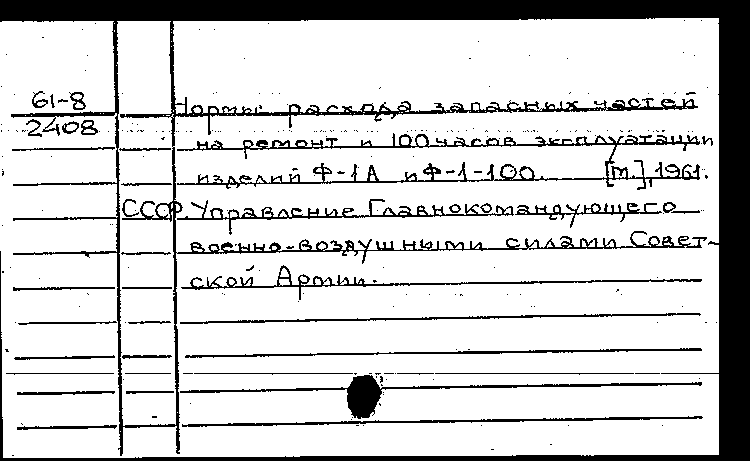 61-8
2408
Нормы расхода запасных частей
на ремонт и 100 часов эксплуатации
изделий Ф-1А и Ф-1-100. [М.], 1961.
СССР. Управление Главнокомандующего
военно-воздушными силами Совет-
ской Армии.